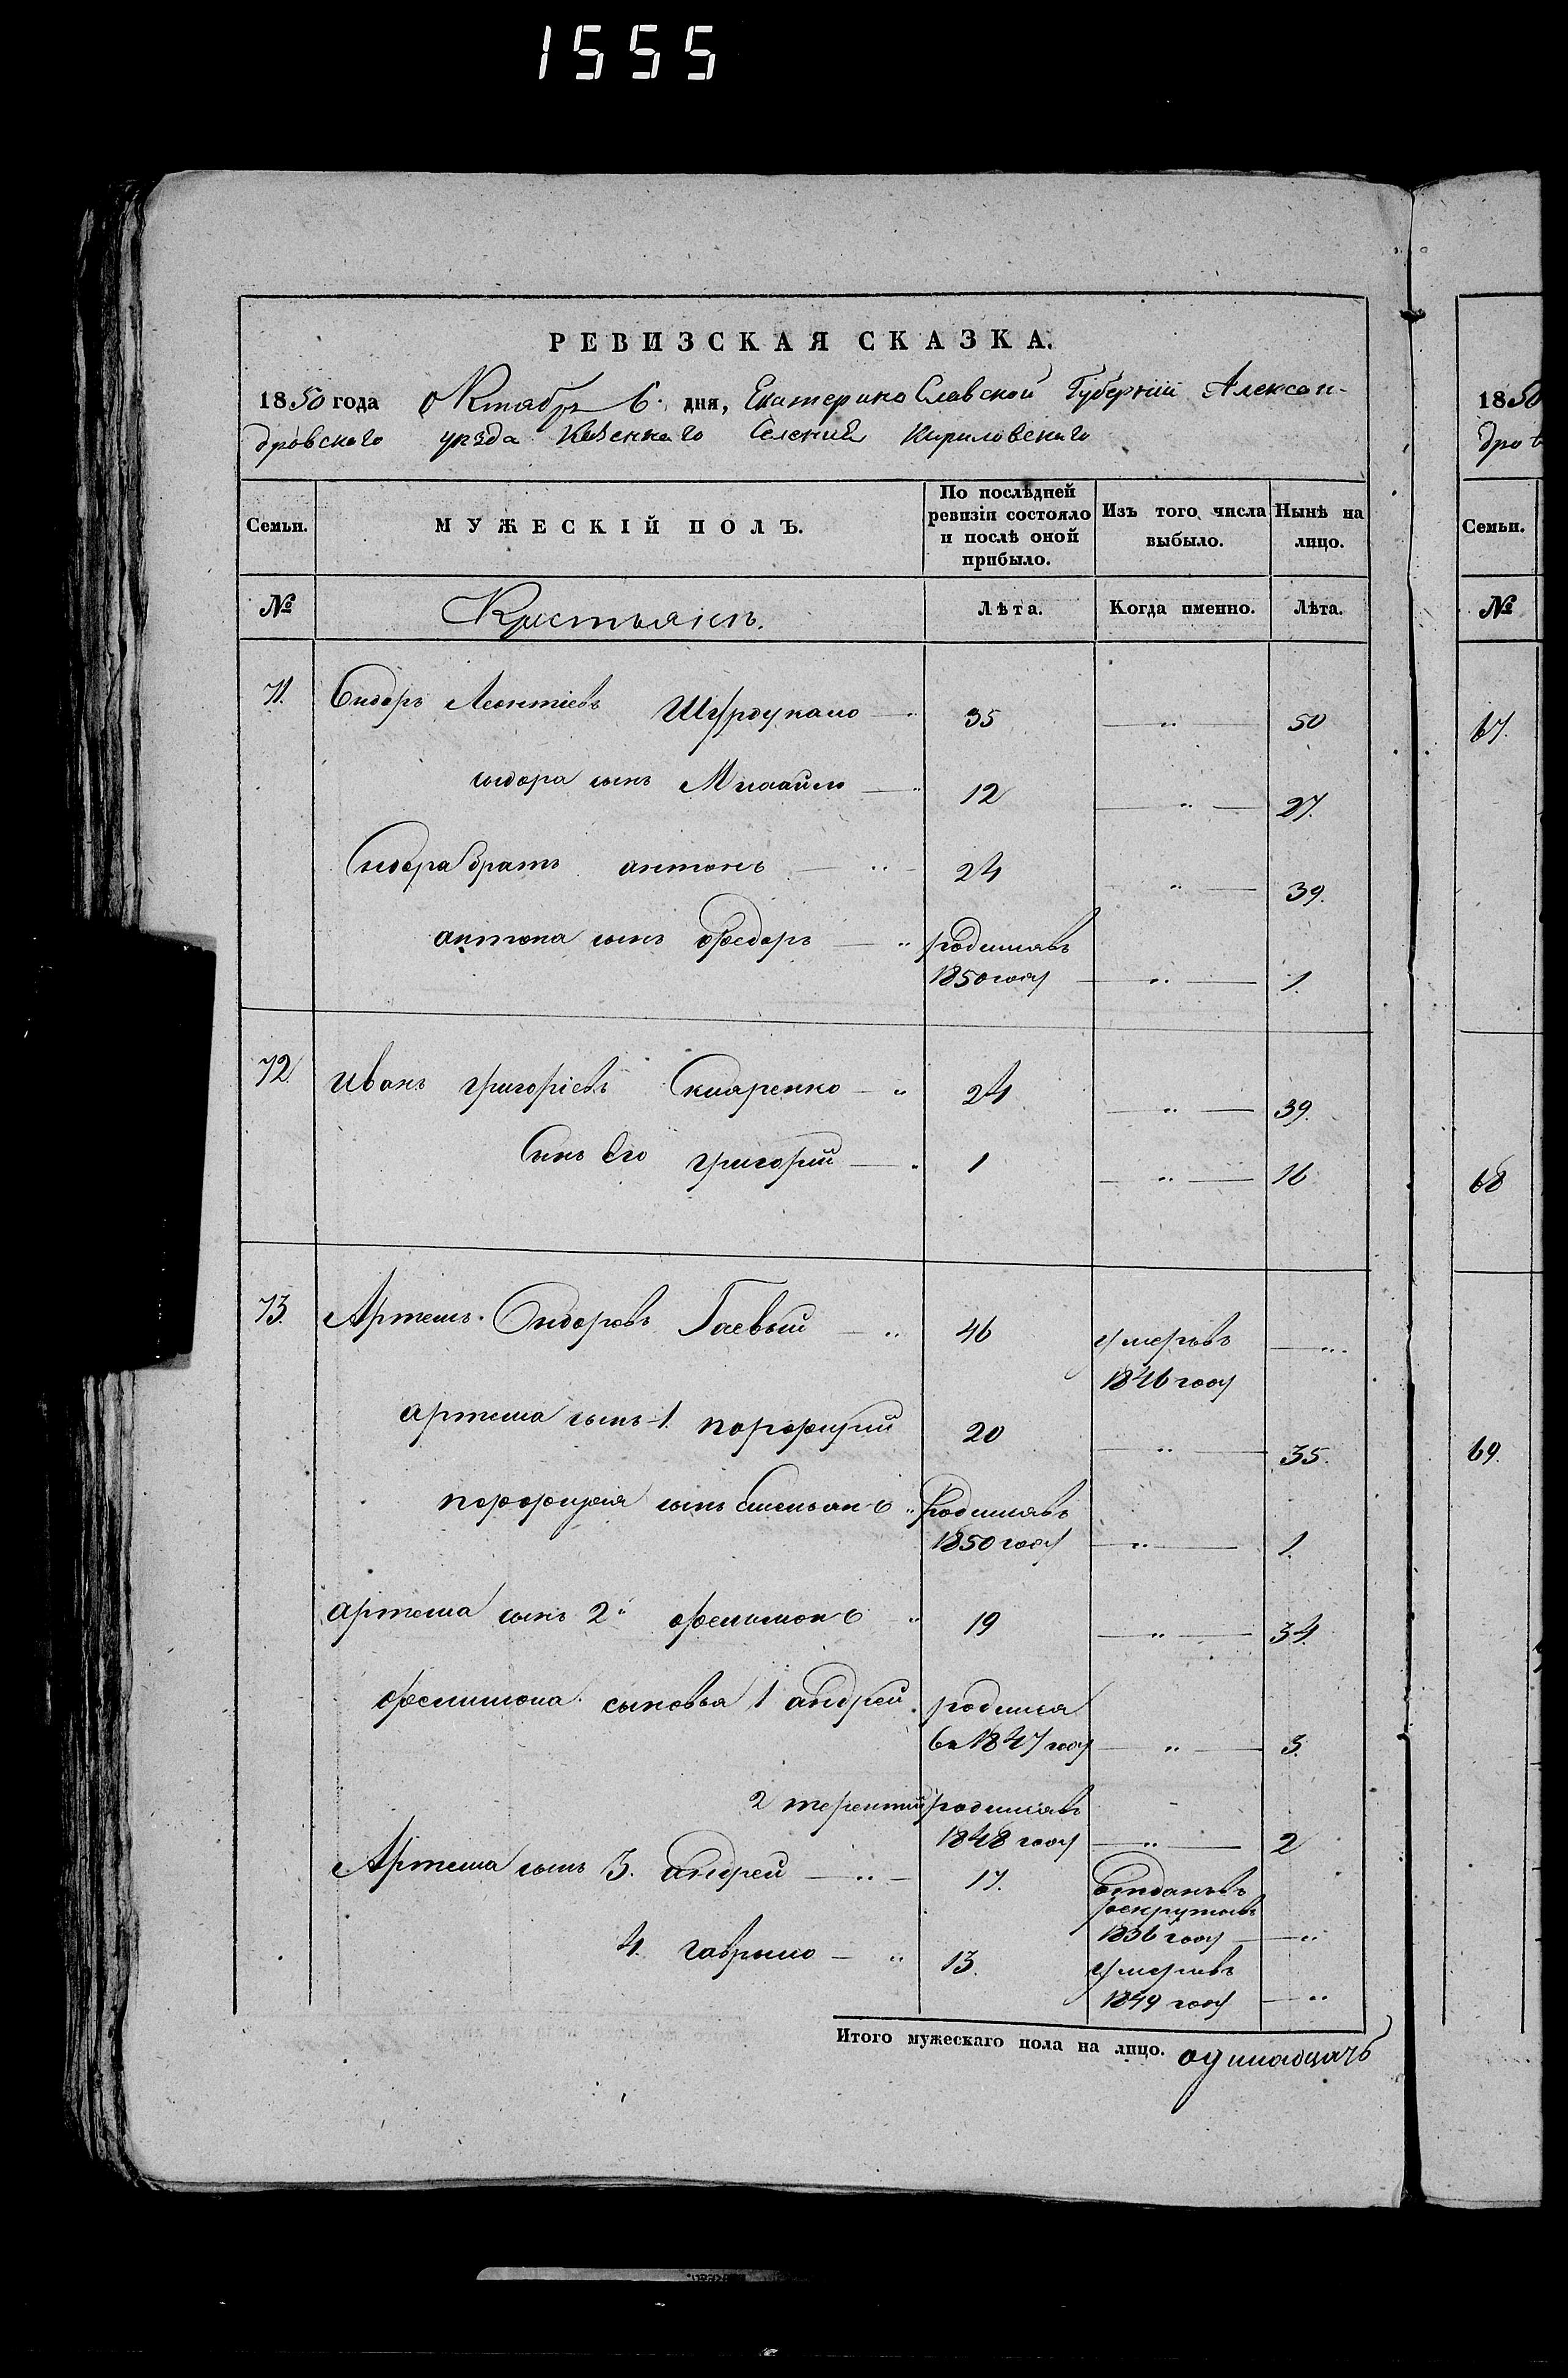 1555
РЕВИЗСКАЯ СКАЗКА.
1850 года Октября 6. дня, Екатеринославской Губернии Алексан-
дровского уезда Казенного Селения Кириловского
Семьи. МУЖЕСКІЙ ПОЛЪ. По послѣдней ревизіи состояло и послѣ оной прибыло. Изъ того числа выбыло. Нынѣ на лицо.
№ Крестьянъ. Лѣта. Когда именно. Лѣта.
71. Сидоръ Леонтіевъ 35 " 50
сидора сынъ Михайло " 12 " 27.
Сидора братъ антонъ " 24 " 39.
антона сынъ федоръ " родился въ
1850 году " 1.
72. иванъ григоріевъ Скляренко " 24 " 39.
Сынъ Его григорий " 1 " 16
73. Артемъ Сидоровъ Гаевый " 46 умеръ въ "
1846 году
артема сынъ 1. порфирий 20 " 35.
порфирия сынъ степанъ " родился въ
1850 году " 1.
артема сынъ 2й фелимонъ " 19 " 34.
фелимона сыновья 1 андрей родился
въ 1847 году " 3.
2 терентий родился въ
1848 году " 2
Артема сынъ 3. андрей " 17. отданъ въ
рекруты въ
1836 году "
4. гаврыло " 13. умеръ въ
1849 году "
Итого мужескаго пола на лицо. одинадцать
1850
дров
Семьи.
№
67.
68
69.